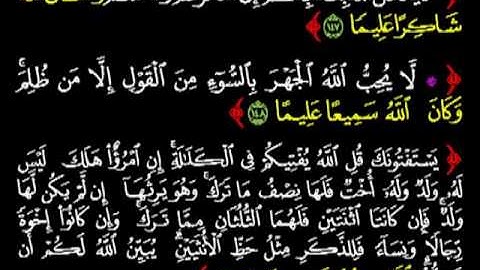 شَاكِرًا عَلِيمًا ﴿١٤٧﴾
لَّا يُحِبُّ اللَّهُ الْجَهْرَ بِالسُّوٓءِ مِنَ الْقَوْلِ إِلَّا مَن ظُلِمَ ۚ
وَكَانَ اللَّهُ سَمِيعًا عَلِيمًا ﴿١٤٨﴾
يَسْتَفْتُونَكَ قُلِ اللَّهُ يُفْتِيكُمْ فِي الْكَلَالَةِ ۚ إِنِ امْرُؤٌا هَلَكَ لَيْسَ
لَهُۥ وَلَدٌ وَلَهُۥٓ أُخْتٌ فَلَهَا نِصْفُ مَا تَرَكَ ۚ وَهُوَ يَرِثُهَآ إِن لَّمْ يَكُن لَّهَا
وَلَدٌ ۚ فَإِن كَانَتَا اثْنَتَيْنِ فَلَهُمَا الثُّلُثَانِ مِمَّا تَرَكَ ۚ وَإِن كَانُوٓا إِخْوَةً
رِّجَالًا وَنِسَآءً فَلِلذَّكَرِ مِثْلُ حَظِّ الْأُنثَيَيْنِ ۗ يُبَيِّنُ اللَّهُ لَكُمْ أَن